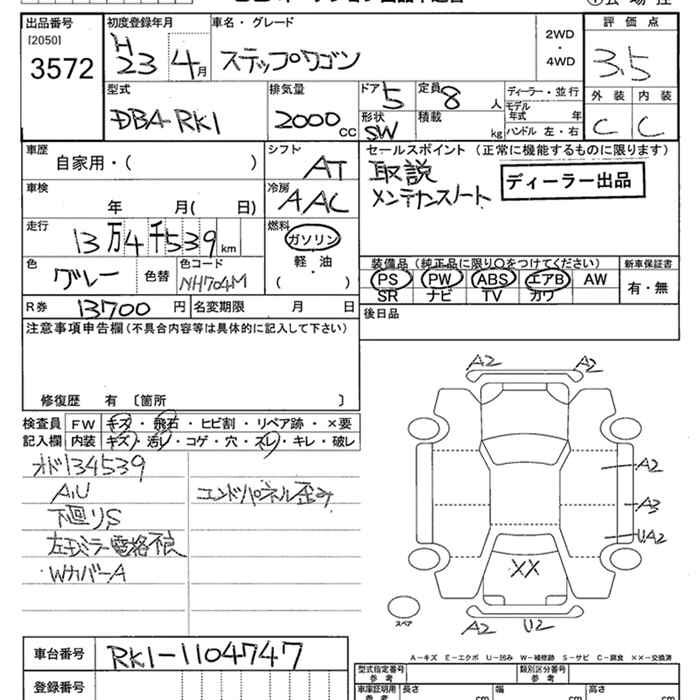 出品番号
[2050]
3572
初度登録年月
H
23 4月
車名・グレード
ステップワゴン
2WD
・
4WD
評価点
3.5
外装 内装
C C
型式
DBA-RK1
排気量
2000 CC
ドア 5
形状
SW
定員 8 人
積載 kg
ディーラー・並行
モデル
年式 年
ハンドル 左・右
車歴
自家用・( )
シフト
AT
車検
年 月( 日)
冷房
AAC
走行
13万4千539km
燃料
ガソリン
軽・油
( )
色
グレー
色替
色コード
NH704M
R券 13700 円
名変期限 月 日
セールスポイント (正常に機能するものに限ります)
取説
メンテナンスノート
ディーラー出品
装備品 (純正品に限り○をつけてください)
PS PW ABS エアB AW
SR ナビ TV カワ
新車保証書
有・無
後日品
注意事項申告欄(不具合内容等は具体的に記入して下さい)
修復歴 有 〔箇所 〕
検査員
記入欄
FW キズ・飛石・ヒビ割・リペア跡・×要
内装 キズ・汚レ・コゲ・穴・スレ・キレ・破レ
オド134539
A,U
下廻りS
左ドミラー電格不良
WカバーA
エンドパネル歪み
A2 A2
A2
A3
U,A2
XX
A2 U2
スペア
A-キズ E-エクボ U-凹み W-補修跡 S-サビ C-腐食 ××-交換済
車台番号 RK1-1104747
登録番号
型式指定番号
参考
類別区分番号
参考
車庫証明用
参考
長さ cm
幅 cm
高さ cm